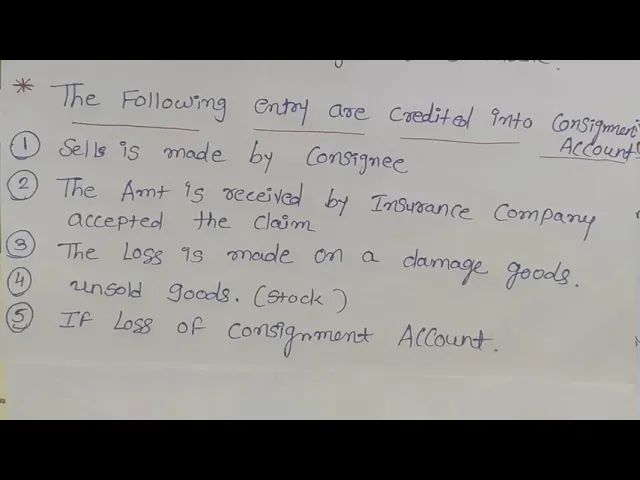 * The Following entry are credited into Consignment
Account
① Sells is made by Consignee
② The Amt is received by Insurance Company
accepted the claim
③ The Loss is made on a damage goods.
④ unsold goods. (stock)
⑤ If Loss of consignment Account.